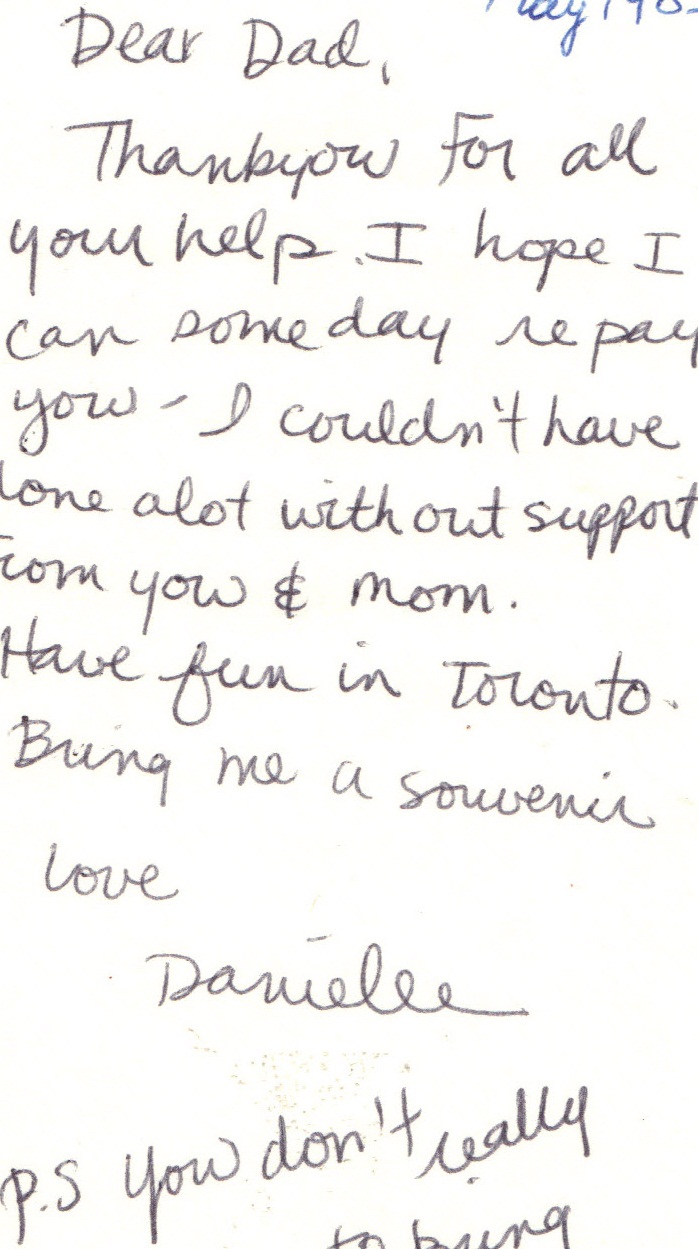 Dear Dad,
Thankyou For all
your help. I hope I
can someday repay
you - I couldn't have
done alot without support
from you & mom.
Have fun in Toronto.
Bring me a souvenir
love
Danielle
P.S you don't really
to bring